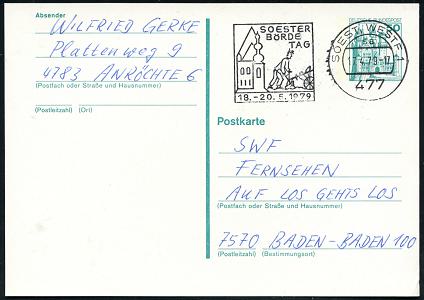 Absender
WILFRIED GERKE
Plattenweg 9
4783 ANRÖCHTE 6
(Postfach oder Straße und Hausnummer)
(Postleitzahl) (Ort)
SOESTER
BÖRDE
TAG
18.-20.5.1979
SOEST, WESTF 1
477
DEUTSCHE BUNDESPOST
50
Postkarte
SWF
FERNSEHEN
AUF LOS GEHTS LOS
(Postfach oder Straße und Hausnummer)
7570 BADEN-BADEN 100
(Postleitzahl) (Bestimmungsort)